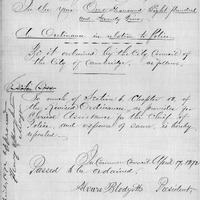 In the year One thousand Eight hundred
and Seventy Nine
An Ordinance in relation to Police
Be it ordained by the City Council of
the City of Cambridge, as follows,
So much of Section 6, Chapter 10, of
the Revised Ordinances, as provides for
Clerical Assistance for the Chief of
Police, and expense of same, is hereby
repealed.
In Common Council April 17, 1879
Passed to be ordained.
President.